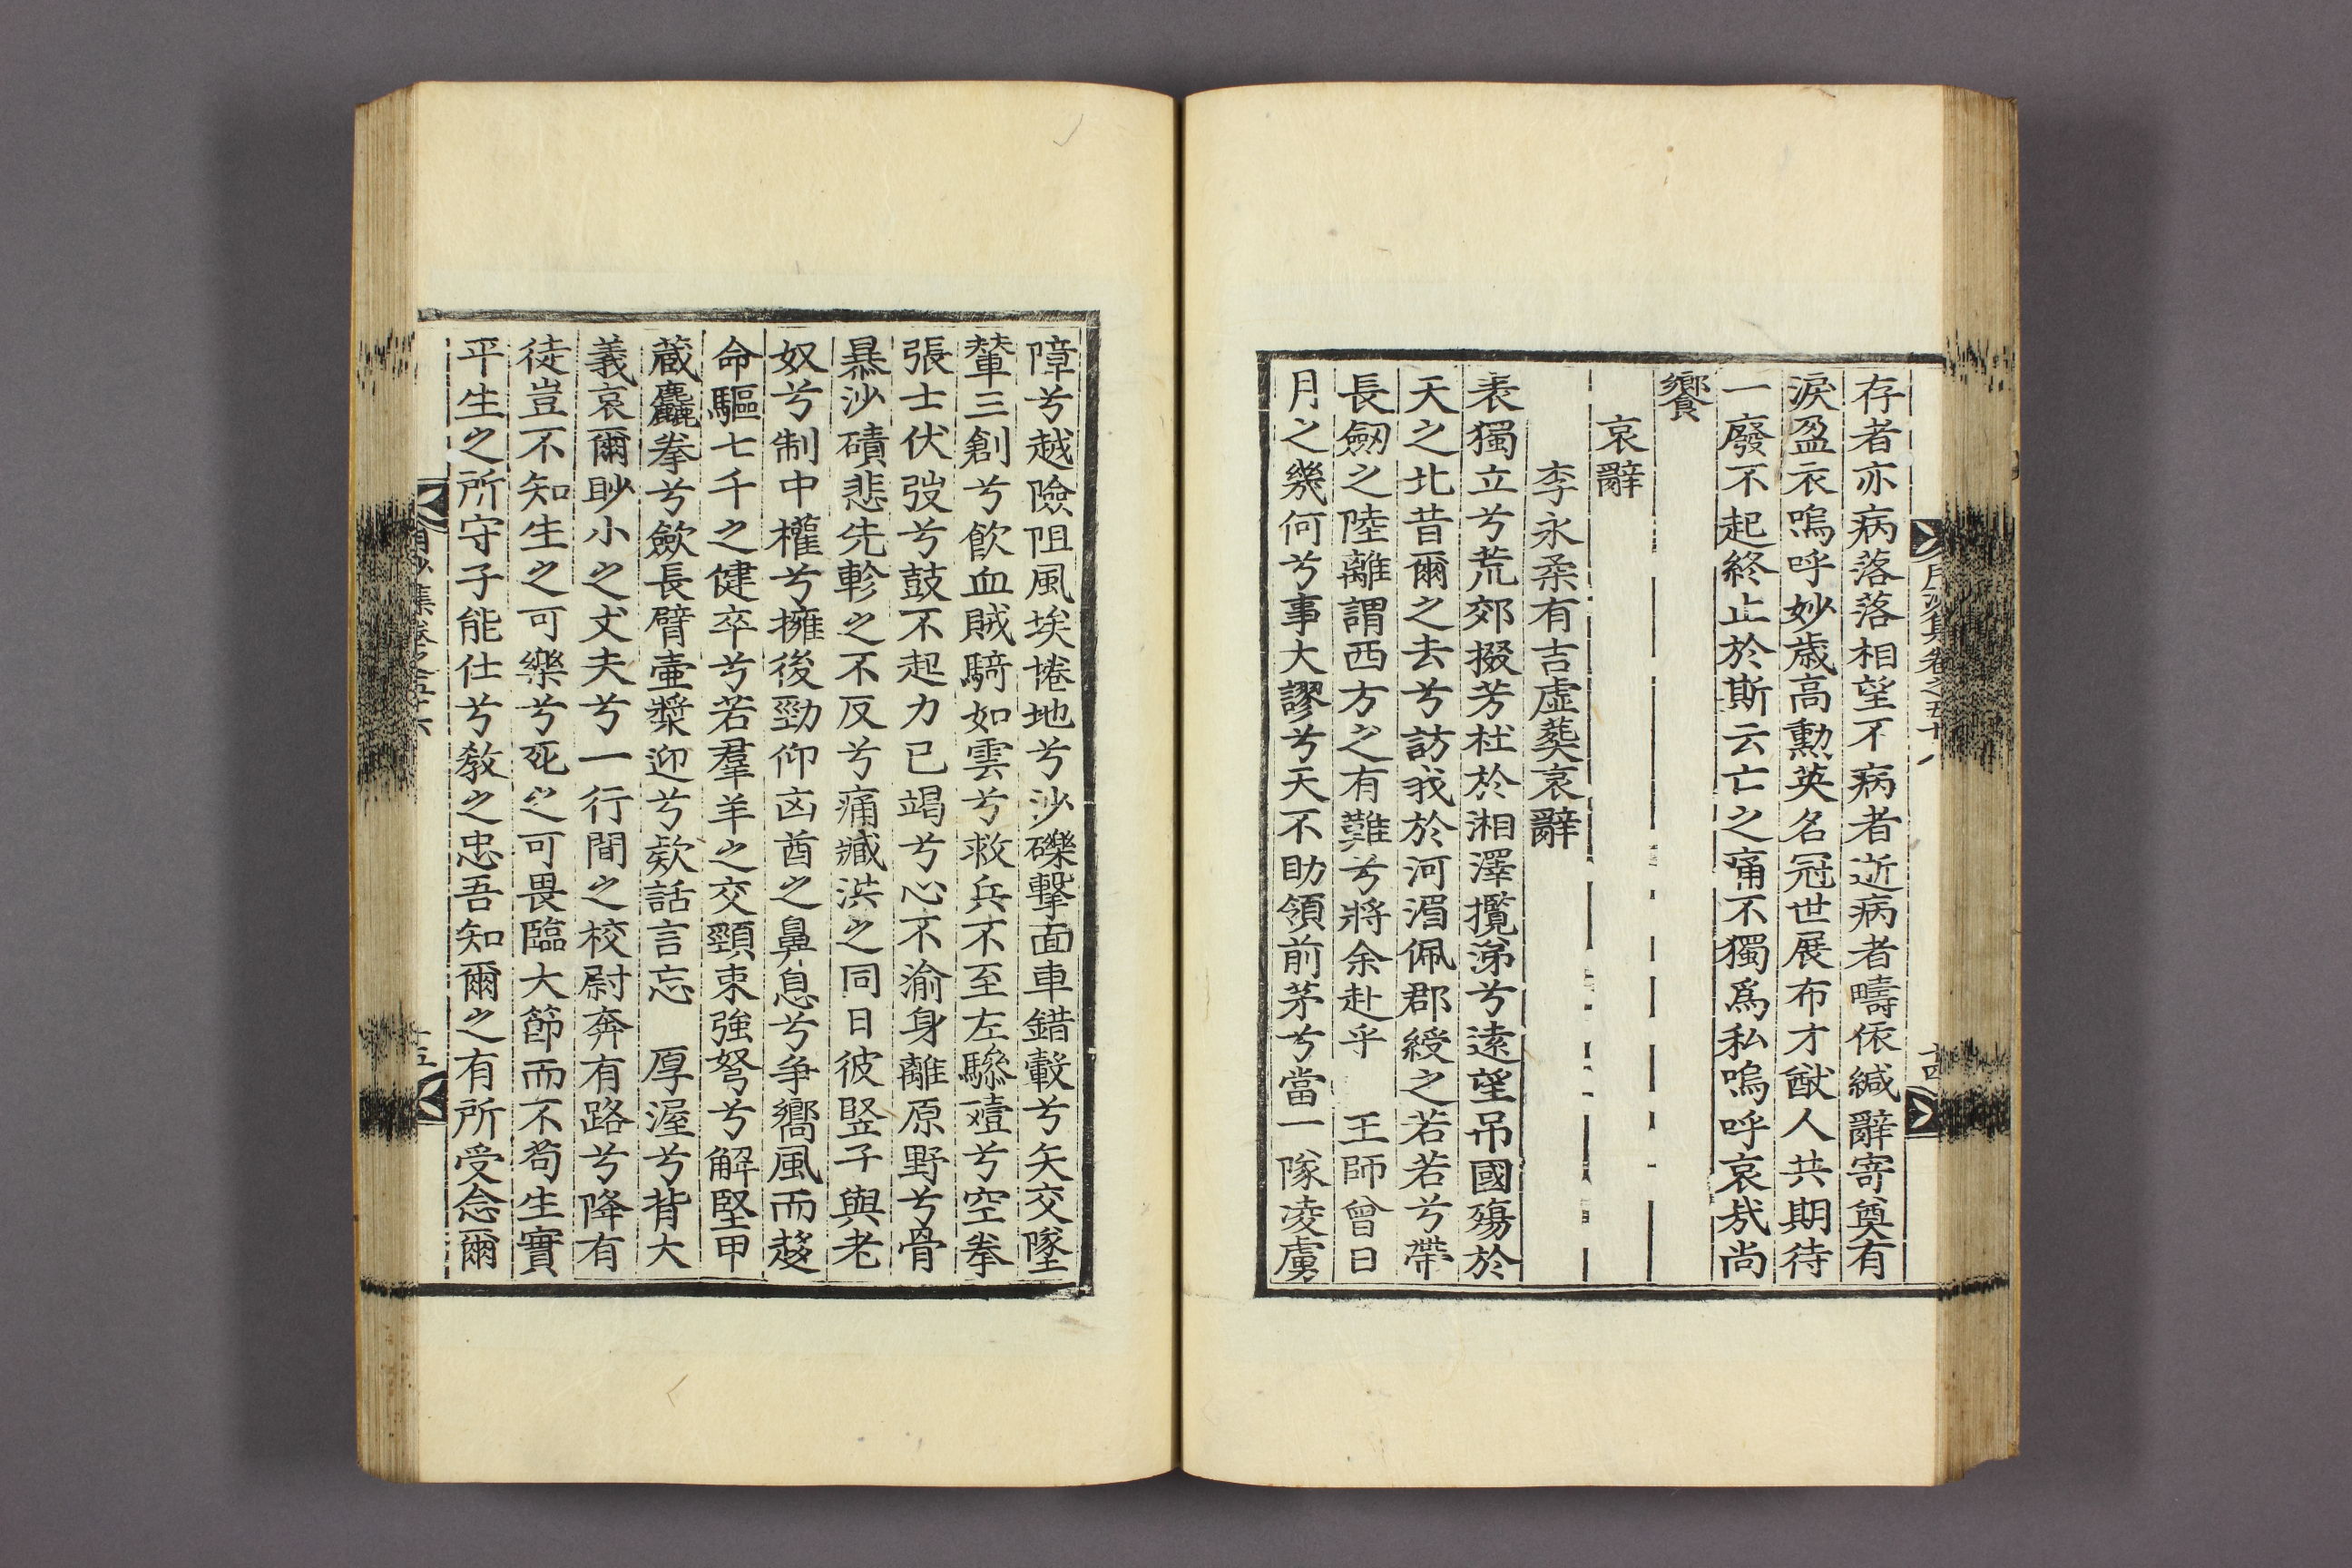 存者亦病落落相望不病者逝病者疇依緘辭寄奠有
淚盈衣嗚呼妙歲高勳英名冠世展布才猷人共期待
一廢不起終止於斯云亡之痛不獨爲私嗚呼哀哉尚
饗
哀辭
李永柔有吉虛葬哀辭
表獨立兮荒郊掇芳杜於湘澤攬涕兮遠望吊國殤於
天之北昔爾之去兮訪我於河湄佩郡綬之若若兮帶
長劒之陸離謂西方之有難兮將余赴乎 王師曾日
月之幾何兮事大謬兮天不助領前茅兮當一隊凌虜
障兮越險阻風埃捲地兮沙礫擊面車錯轂兮矢交墜
輦三創兮飮血賊騎如雲兮救兵不至左驂殪兮空拳
張士伏弢兮鼓不起力已竭兮心不渝身離原野兮骨
暴沙磧悲先軫之不反兮痛臧洪之同日彼竪子與老
奴兮制中權兮擁後勁仰凶酋之鼻息兮爭嚮風而趍
命驅七千之健卒兮若羣羊之交頸束強弩兮解堅甲
藏麤拳兮歛長臂壷漿迎兮欵話言忘 厚渥兮背大
義哀爾眇小之丈夫兮一行間之校尉奔有路兮降有
徒豈不知生之可樂兮死之可畏臨大節而不苟生實
平生之所守子能仕兮敎之忠吾知爾之有所受念爾
月沙集卷之五十六
十五